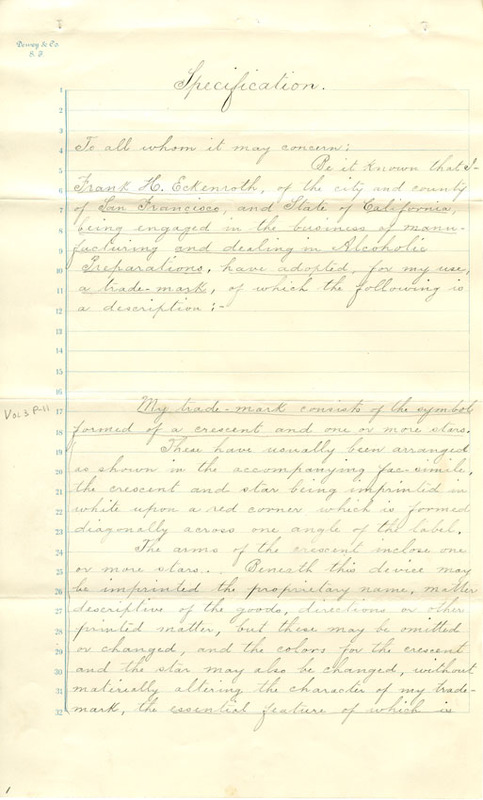 Dewey & Co.
S. F.
Specification.
1
2
3
4 To all whom it may concern:
5 Be it known that I-
6 Frank H. Eckenroth, of the city and county
7 of San Francisco, and State of California,
8 being engaged in the business of manu-
9 facturing and dealing in Alcoholic
10 Preparations, have adopted, for my use,
11 a trade-mark, of which the following is
12 a description :-
13
14
15
16
Vol 3 P-11
17 My trade-mark consists of the symbol
18 formed of a crescent and one or more stars.
19 These have usually been arranged
20 as shown in the accompanying fac-simile,
21 the crescent and star being imprinted in
22 white upon a red corner which is formed
23 diagonally across one angle of the label.
24 The arms of the crescent inclose one
25 or more stars. . Beneath this device may
26 be imprinted the proprietary name, matter
27 descriptive of the goods, directions or other
28 printed matter, but these may be omitted
29 or changed, and the colors for the crescent
30 and the star may also be changed, without
31 matireally altering the character of my trade-
32 mark, the essential feature of which is